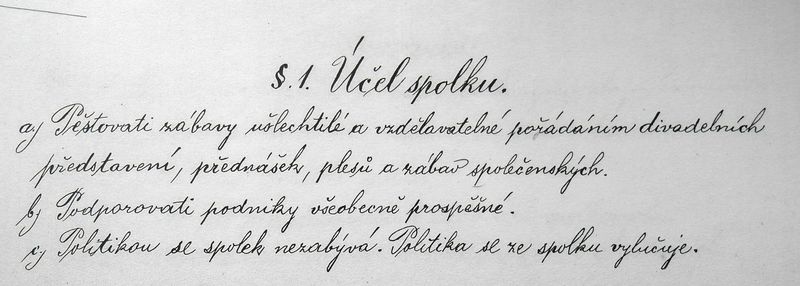 §. 1. Účel spolku.
a) Pěstovati zábavy ušlechtilé a vzdělavatelné pořádáním divadelních
představení, přednášek, plesů a zábav společenských.
b) Podporovati podniky všeobecně prospěšné.
c) Politikou se spolek nezabývá. Politika se ze spolku vylučuje.